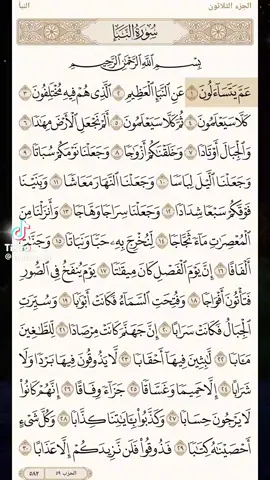 الجزء الثلاثون
النبأ
سُورَةُ النَّبَإِ
بِسْمِ اللَّهِ الرَّحْمَٰنِ الرَّحِيمِ
عَمَّ يَتَسَاءَلُونَ ١ عَنِ النَّبَإِ الْعَظِيمِ ٢ الَّذِي هُمْ فِيهِ مُخْتَلِفُونَ ٣
كَلَّا سَيَعْلَمُونَ ٤ ثُمَّ كَلَّا سَيَعْلَمُونَ ٥ أَلَمْ نَجْعَلِ الْأَرْضَ مِهَٰدًا ٦
وَالْجِبَالَ أَوْتَادًا ٧ وَخَلَقْنَٰكُمْ أَزْوَٰجًا ٨ وَجَعَلْنَا نَوْمَكُمْ سُبَاتًا ٩
وَجَعَلْنَا الَّيْلَ لِبَاسًا ١٠ وَجَعَلْنَا النَّهَارَ مَعَاشًا ١١ وَبَنَيْنَا
فَوْقَكُمْ سَبْعًا شِدَادًا ١٢ وَجَعَلْنَا سِرَاجًا وَهَّاجًا ١٣ وَأَنزَلْنَا مِنَ
الْمُعْصِرَٰتِ مَاءً ثَجَّاجًا ١٤ لِّنُخْرِجَ بِهِ حَبًّا وَنَبَاتًا ١٥ وَجَنَّٰتٍ
أَلْفَافًا ١٦ إِنَّ يَوْمَ الْفَصْلِ كَانَ مِيقَٰتًا ١٧ يَوْمَ يُنفَخُ فِي الصُّورِ
فَتَأْتُونَ أَفْوَاجًا ١٨ وَفُتِحَتِ السَّمَاءُ فَكَانَتْ أَبْوَٰبًا ١٩ وَسُيِّرَتِ
الْجِبَالُ فَكَانَتْ سَرَابًا ٢٠ إِنَّ جَهَنَّمَ كَانَتْ مِرْصَادًا ٢١ لِّلطَّٰغِينَ
مَـَٔابًا ٢٢ لَّٰبِثِينَ فِيهَا أَحْقَابًا ٢٣ لَّا يَذُوقُونَ فِيهَا بَرْدًا وَلَا
شَرَابًا ٢٤ إِلَّا حَمِيمًا وَغَسَّاقًا ٢٥ جَزَاءً وِفَاقًا ٢٦ إِنَّهُمْ كَانُوا
لَا يَرْجُونَ حِسَابًا ٢٧ وَكَذَّبُوا بِـَٔايَٰتِنَا كِذَّابًا ٢٨ وَكُلَّ شَيْءٍ
أَحْصَيْنَٰهُ كِتَٰبًا ٢٩ فَذُوقُوا فَلَن نَّزِيدَكُمْ إِلَّا عَذَابًا ٣٠
الحزب ٥٩
٥٨٢